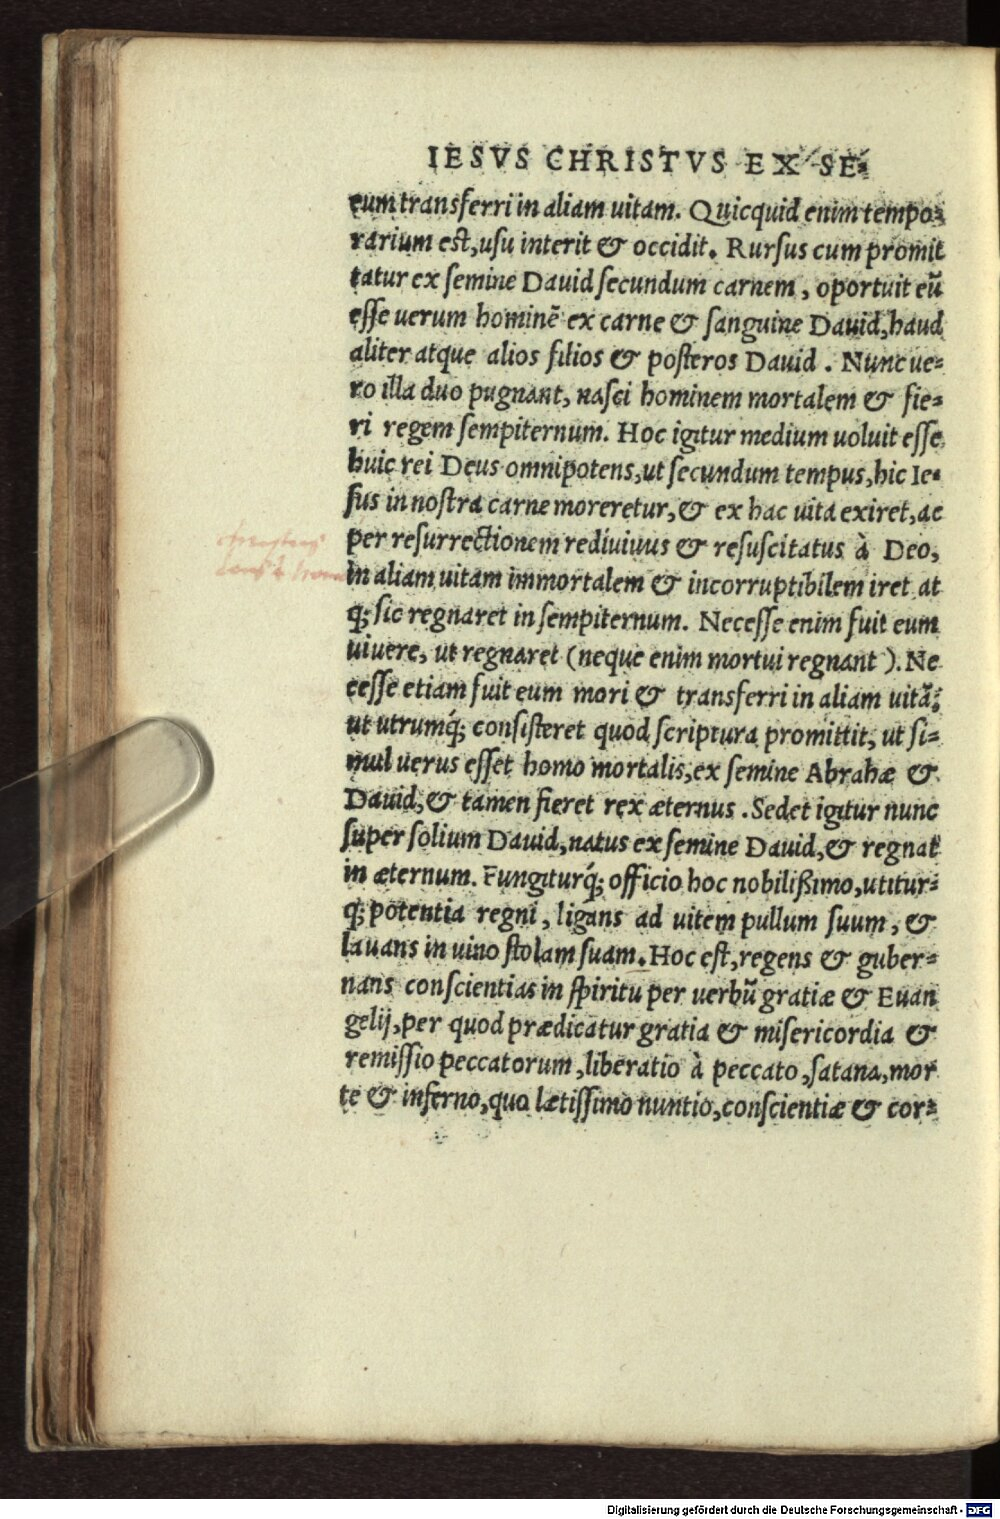 IESVS CHRISTVS EX SE-
eum transferri in aliam uitam. Quicquid enim tempo-
rarium est, usu interit & occidit. Rursus cum promit
tatur ex semine Dauid secundum carnem, oportuit eũ
esse uerum hominẽ ex carne & sanguine Dauid, haud
aliter atque alios filios & posteros Dauid. Nunc ue-
ro illa duo pugnant, nasci hominem mortalem & fie-
ri regem sempiternum. Hoc igitur medium uoluit esse
huic rei Deus omnipotens, ut secundum tempus, hic Ie-
sus in nostra carne moreretur, & ex hac uita exiret, ac
per resurrectionem rediuiuus & resuscitatus à Deo,
in aliam uitam immortalem & incorruptibilem iret at
q; sic regnaret in sempiternum. Necesse enim fuit eum
uiuere, ut regnaret (neque enim mortui regnant). Ne
cesse etiam fuit eum mori & transferri in aliam uitã,
ut utrumq́; consisteret quod scriptura promittit, ut si-
mul uerus esset homo mortalis, ex semine Abrahæ &
Dauid, & tamen fieret rex æternus. Sedet igitur nunc
super solium Dauid, natus ex semine Dauid, & regnat
in æternum. Fungiturq́; officio hoc nobilißimo, utitur-
q; potentia regni, ligans ad uitem pullum suum, &
lauans in uino stolam suam. Hoc est, regens & guber-
nans conscientias in spiritu per uerbũ gratiæ & Euan
gelij, per quod prædicatur gratia & misericordia &
remissio peccatorum, liberatio à peccato, satana, mor
te & inferno, quo lætissimo nuntio, conscientiæ & cor-
Digitalisierung gefördert durch die Deutsche Forschungsgemeinschaft - DFG